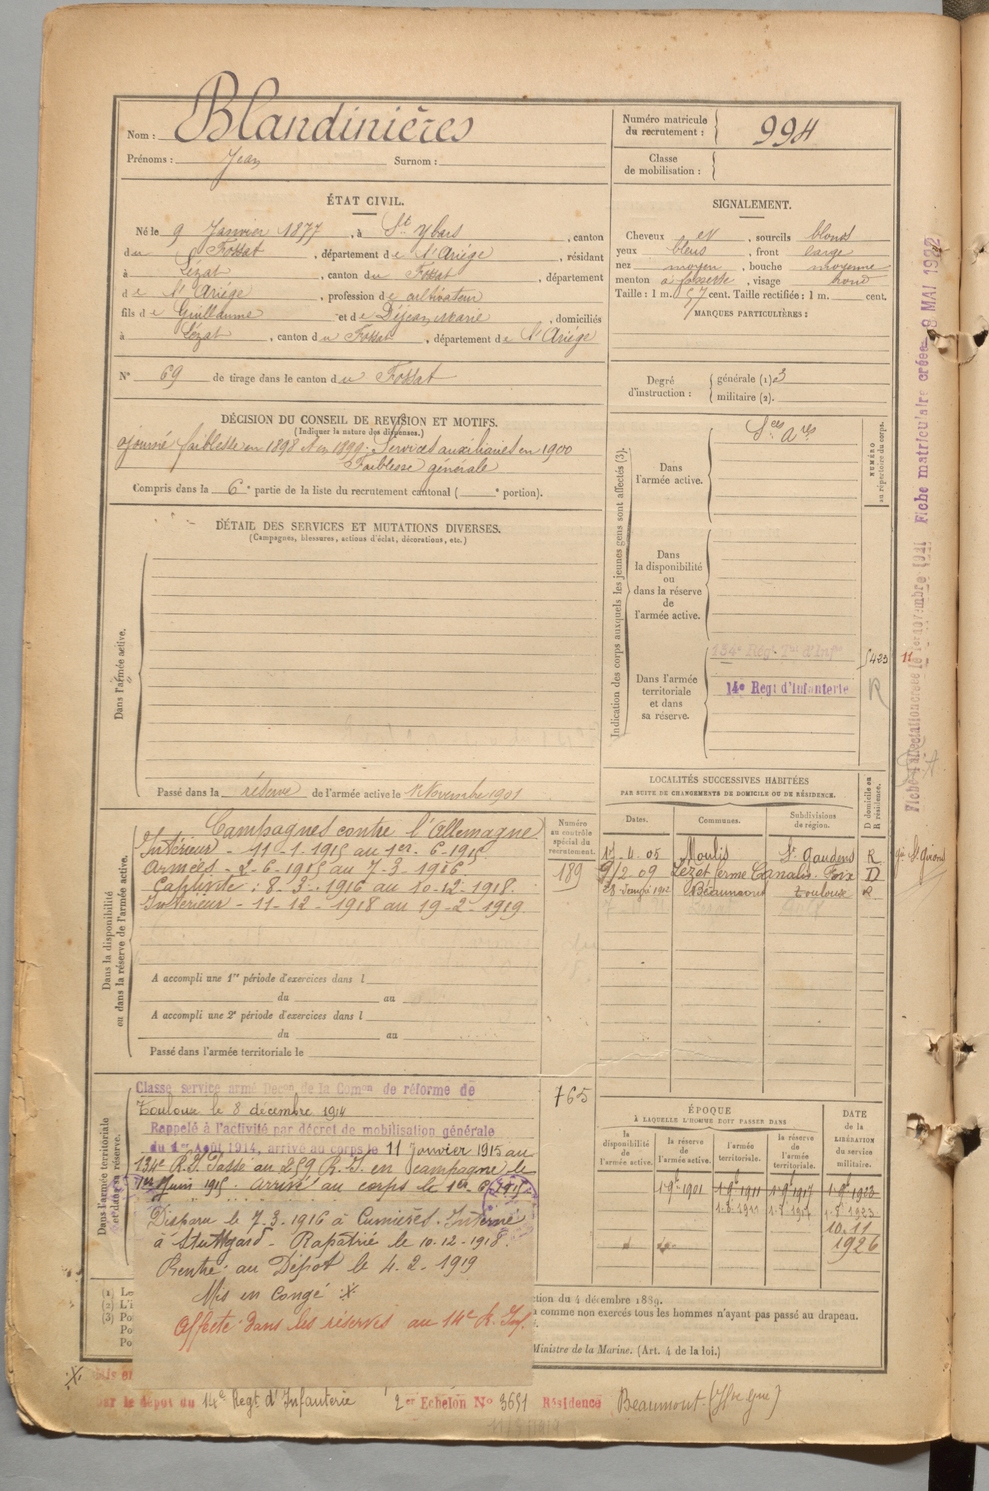 Nom : Blandinières
Prénoms : Jean Surnom :
Numéro matricule du recrutement : 994
Classe de mobilisation :
ÉTAT CIVIL.
Né le 9 Janvier 1877, à St Ybars, canton
du Fossat, département de l'Ariége, résidant
à Lézat, canton du Fossat, département
de l'Ariége, profession de cultivateur
fils de Guillaume et de Dejean Marie, domiciliés
à Lézat, canton du Fossat, département de l'Ariége
N° 69 de tirage dans le canton du Fossat
SIGNALEMENT.
Cheveux et, sourcils blonds
yeux bleus, front large
nez moyen, bouche moyenne
menton à fossette, visage rond
Taille : 1 m. 57 cent. Taille rectifiée : 1 m. cent.
MARQUES PARTICULIÈRES :
Degré d'instruction : générale (1) 3
militaire (2).
DÉCISION DU CONSEIL DE REVISION ET MOTIFS.
(Indiquer la nature des dispenses.)
ajourné faiblesse en 1898 et en 1899. Services auxiliaires en 1900
Faiblesse générale
Compris dans la 6e partie de la liste du recrutement cantonal ( e portion).
DÉTAIL DES SERVICES ET MUTATIONS DIVERSES.
(Campagnes, blessures, actions d'éclat, décorations, etc.)
Dans l'armée active.
Passé dans la réserve de l'armée active le 1er Novembre 1901
Indication des corps auxquels les jeunes gens sont affectés (3).
NUMÉRO au répertoire du corps.
Dans l'armée active.
Sces ares
Dans la disponibilité ou dans la réserve de l'armée active.
Dans l'armée territoriale et dans sa réserve.
134e Régt Tal d'Infie
423
14e Regt d'Infanterie
R
LOCALITÉS SUCCESSIVES HABITÉES
PAR SUITE DE CHANGEMENTS DE DOMICILE OU DE RÉSIDENCE.
Dates. Communes. Subdivisions de région. D domicile ou R résidence.
4.05 Moulis St Gaudens R
9/2 09 Lézat ferme Canalis Foix D
1912 Beaumont Toulouse R
Dans la disponibilité ou dans la réserve de l'armée active.
Campagnes contre l'Allemagne
Intérieur - 11-1-1915 au 1er-6-1915
Armées - 2-6-1915 au 7-3-1916.
Captivité : 8-3-1916 au 10-12-1918.
Intérieur - 11-12-1918 au 19-2-1919
Numéro au contrôle spécial du recrutement.
189
A accompli une 1re période d'exercices dans l
du au
A accompli une 2e période d'exercices dans l
du au
Passé dans l'armée territoriale le
Dans l'armée territoriale et dans sa réserve.
Classé service armé Decon de la Comon de réforme de
Toulouse le 8 décembre 1914
Rappelé à l'activité par décret de mobilisation générale
du 1er Août 1914, arrivé au corps le 11 Janvier 1915 au
134e R.I. Passé au 259 R.I. en campagne le
1er Juin 1915. Arrivé au corps le 1er-6-1915
Disparu le 7-3-1916 à Cumières. Interné
à Stuttgard - Rapatrié le 10-12-1918.
Rentré au Dépot le 4-2-1919
Mis en congé X
Affecté dans les réserves au 14e R. Inf.
765
ÉPOQUE
À LAQUELLE L'HOMME DOIT PASSER DANS
la disponibilité de l'armée active. la réserve de l'armée active. l'armée territoriale. la réserve de l'armée territoriale.
DATE de la LIBÉRATION du service militaire.
1-9bre 1901 1-9bre 1911 1-9bre 1917 1-9bre 1923
10.11
1926
ction du 4 décembre 1889.
comme non exercés tous les hommes n'ayant pas passé au drapeau.
Ministre de la Marine. (Art. 4 de la loi.)
X. Mis en
par le dépot du 14e Regt d'Infanterie 2er Echelon N° 3651 Résidence Beaumont (Hte Gne)
Fiche matriculaire créée 8 MAI 1922